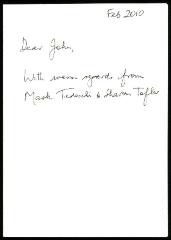 Feb 2010
Dear John,
With warm regards from
Mark Tedeschi & Sharon